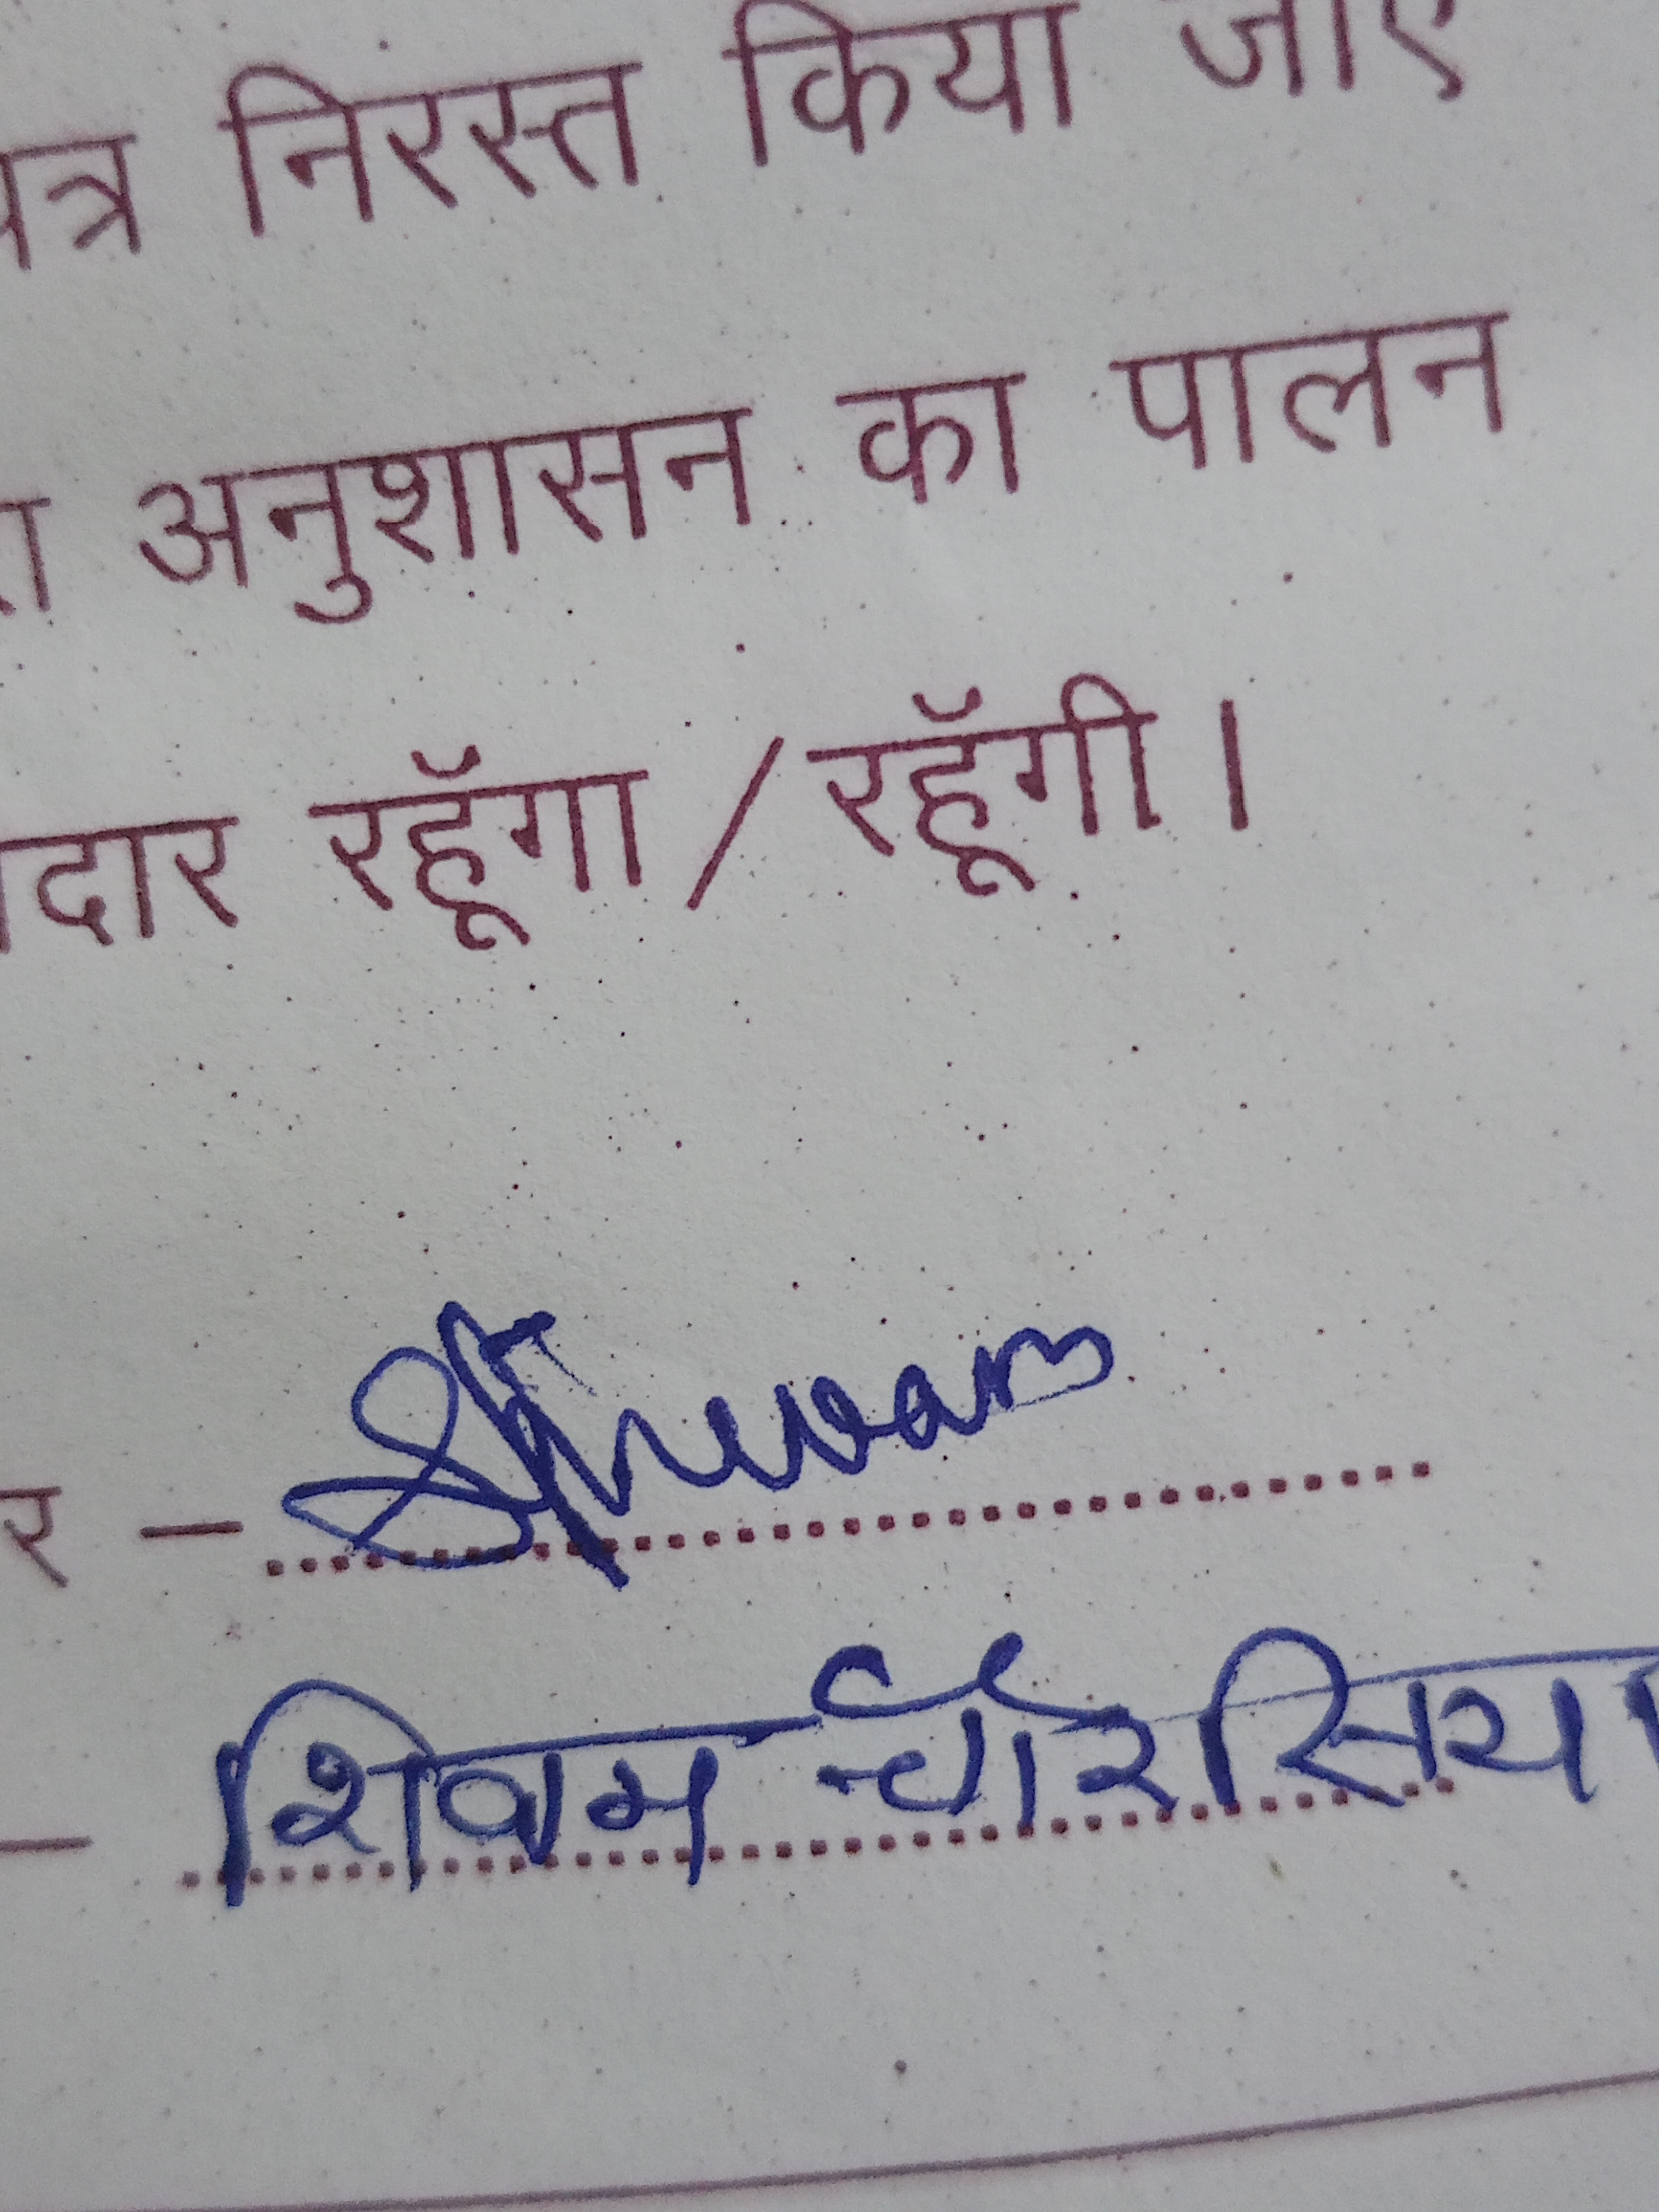 पत्र निरस्त किया जाए
अनुशासन का पालन
दार रहूँगा / रहूँगी ।
र – Shivam
– शिवम चौरसिया